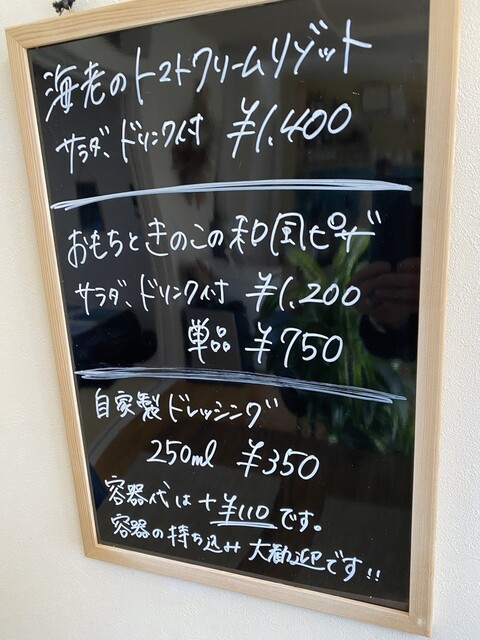 海老のトマトクリームリゾット
サラダ、ドリンク付 ¥1,400
おもちときのこの和風ピザ
サラダ、ドリンク付 ¥1,200
単品 ¥750
自家製ドレッシング
250ml ¥350
容器代は+¥110です。
容器の持ち込み大歓迎です!!